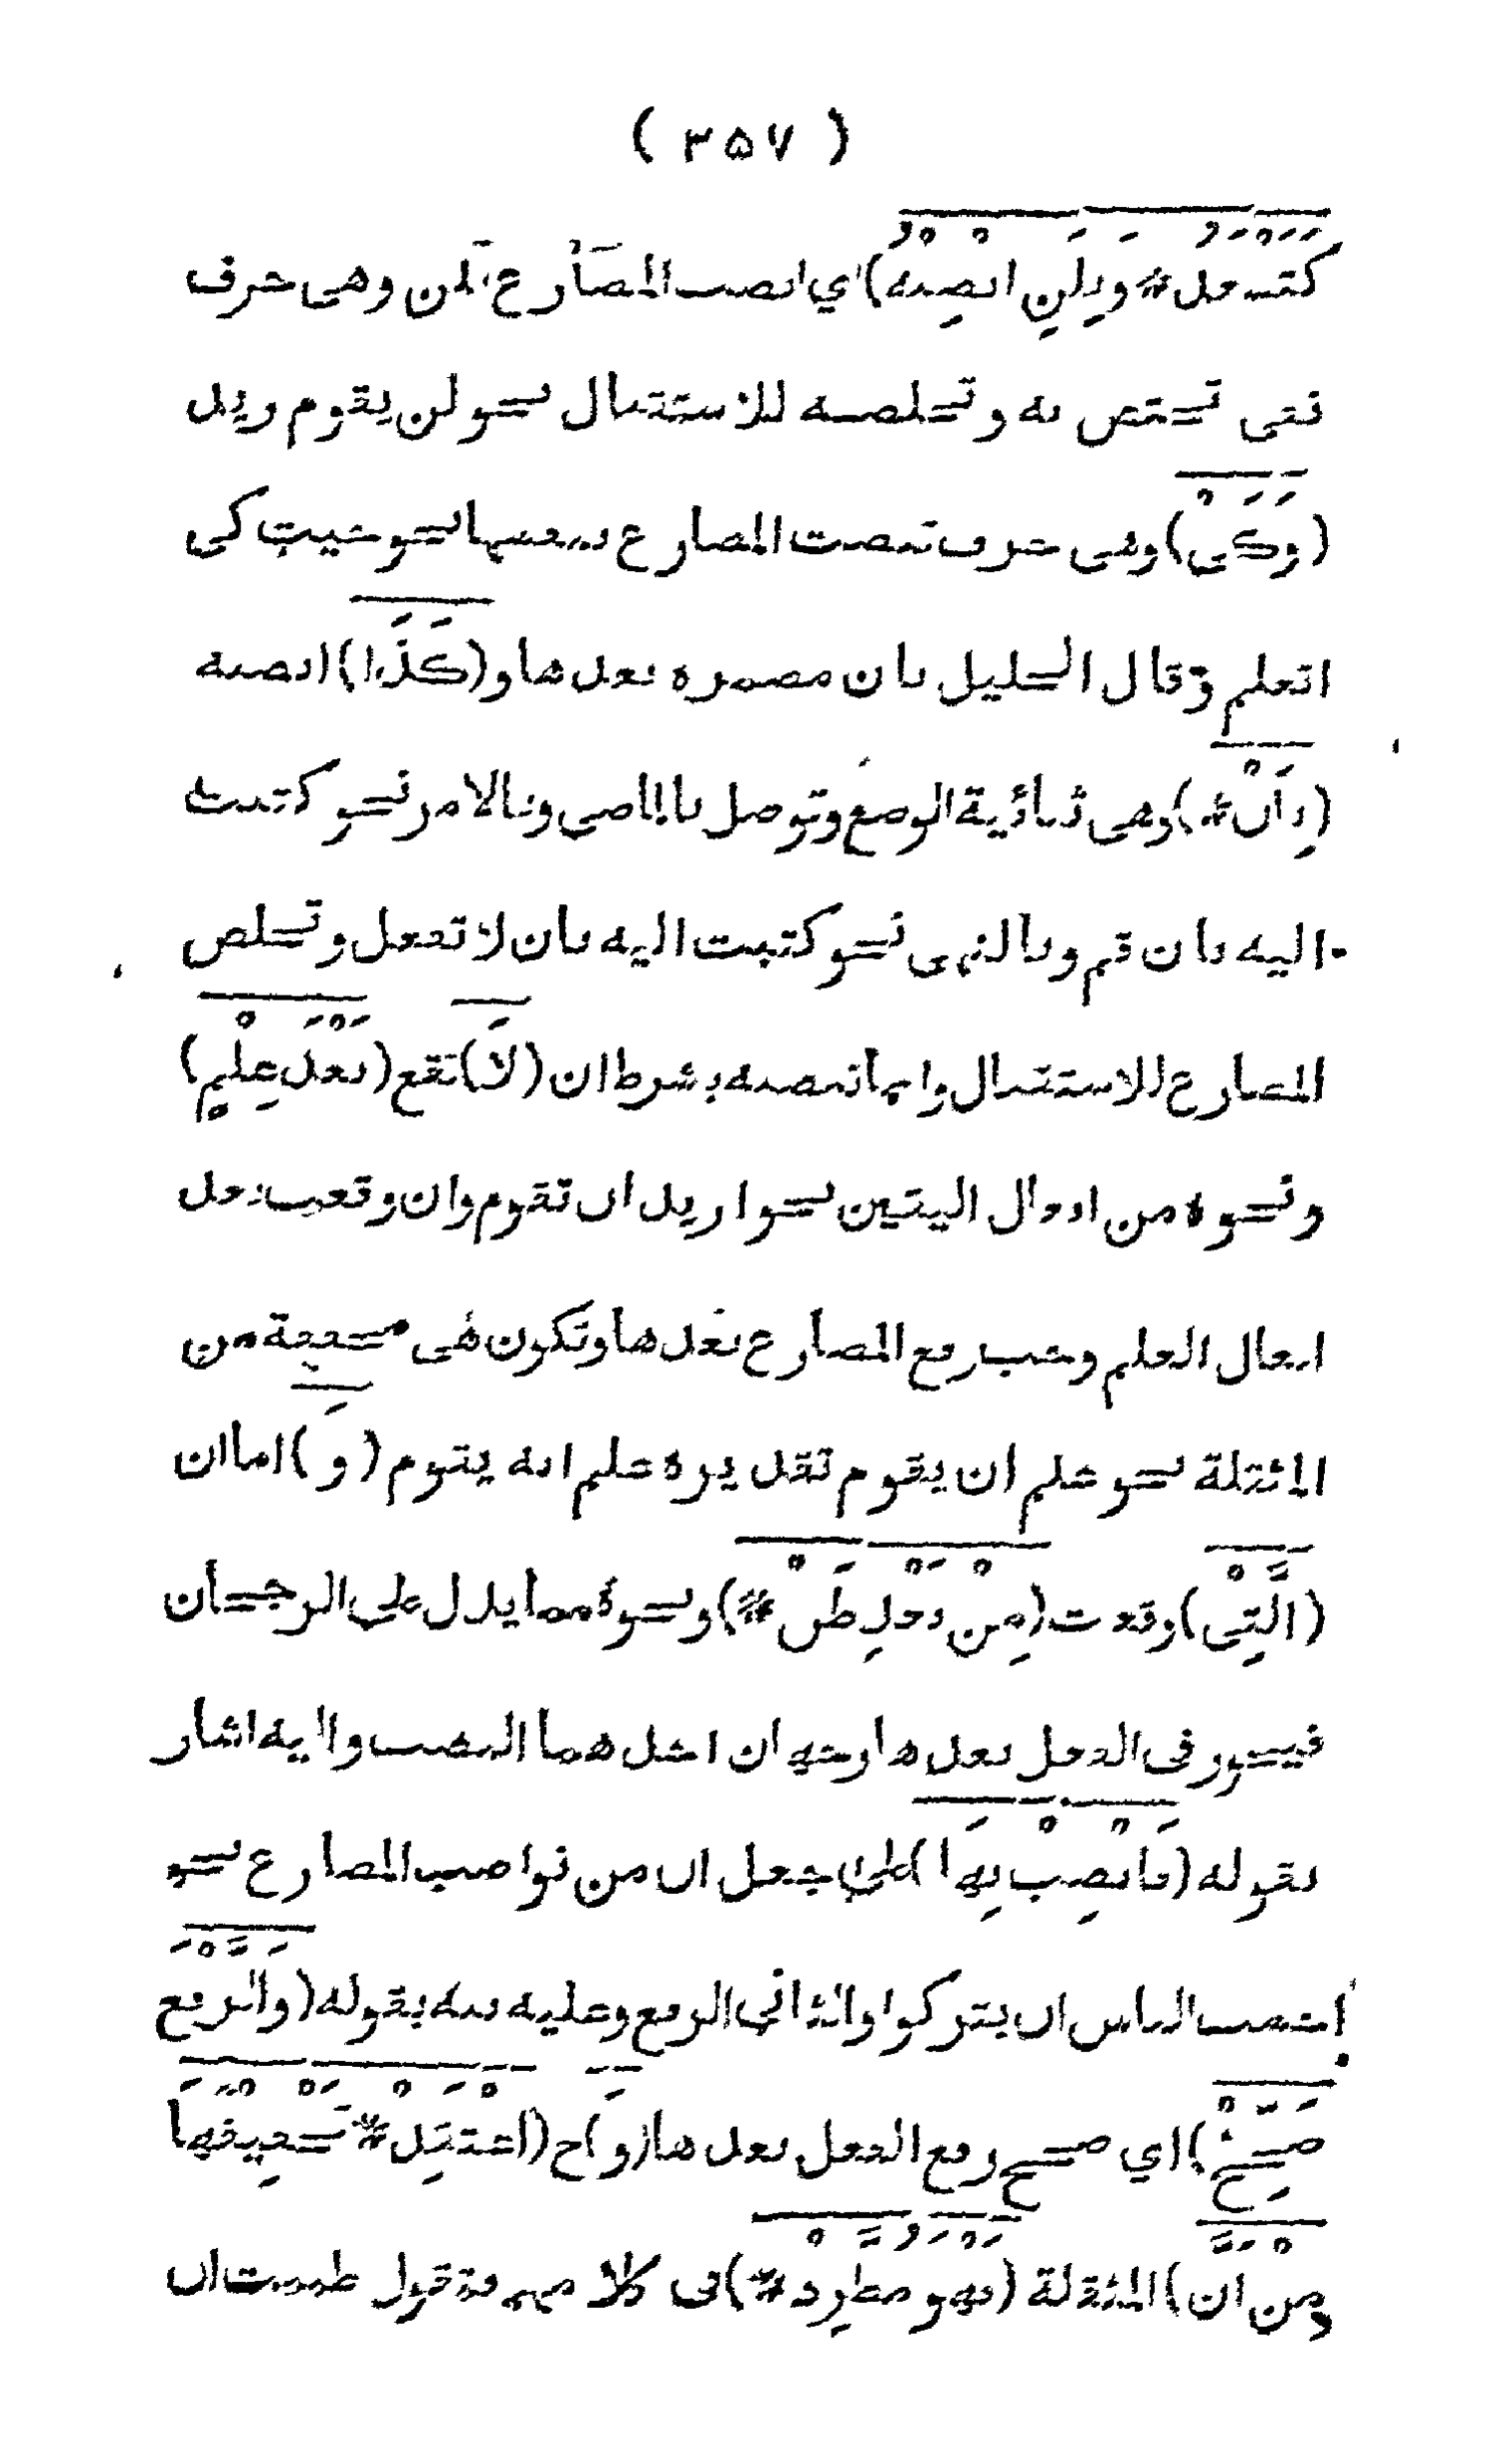 ( ٣٥٧ )
كَتَسْعَدُ * وَبِلَنِ انْصِبْهُ) اي انصب المضارع بلن وهى حرف
نفى تختص به وتخلصه للاستقبال نحو لن يقوم زيد
(وَكَىْ) وهى حرف تنصب المضارع بنفسها نحو جيت كى
اتعلم وقال الخليل بان مضمرة بعدها و(كَذَا) انصبه
(بِأَنْ *) وهى ثنائية الوضع وتوصل بالماضى وبالامر نحو كتبت
اليه بان قم وبالنهى نحو كتبت اليه بان لا تفعل وتخلص
المضارع للاستقبال وانما تنصبه بشرط ان (لَا) تقع (بَعْدَ عِلْمٍ)
ونحوه من افعال اليقين نحو اريد ان تقوم وان وقعت بعد
افعال العلم وجب رفع المضارع بعدها وتكون هى مخففة من
المثقلة نحو علم ان يقوم تقديره علم انه يقوم (وَ) اما ان
(الَّتِىْ) وقعت (مِنْ بَعْدِ ظَنْ *) ونحوه مما يدل على الرجحان
فيجوز فى الفعل بعدها وجهان احدهما النصب واليه اشار
بقوله (فَانْصِبْ بِهَا) على جعل ان من نواصب المضارع نحو
احسب الناس ان يتركوا والثاني الرفع وعليه نبه بقوله (وَالرَّفْعَ
صَحِّحْ) اي صحح رفع الفعل بعدها (وَ) ح (اعْتَقِدْ * تَخْفِيفَهَا
مِنْ أَنَّ) المثقلة (فَهْوَ مُطَّرِدْ *) فى كلامهم فتقول ظننت ان